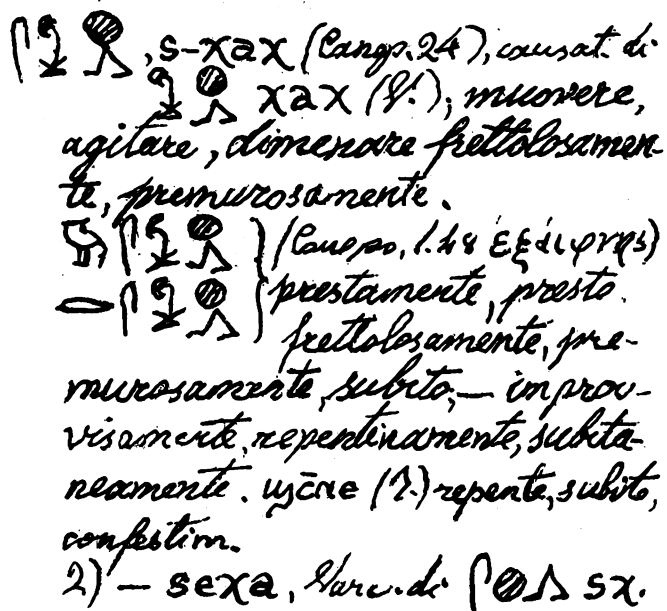 𓋴𓆼𓐍𓂻, s-χaχ (Canop. 24), causat. di
𓆼𓐍𓂻 χaχ (V.); muovere,
agitare, dimenare frettolosamen-
te, premurosamente.
(Canop, l. 48 ἐξάιφνης)
prestamente, presto.
frettolosamente, pre-
murosamente, subito, — improv-
visamente, repentinamente, subita-
neamente. ϣⲥ̅ⲛⲉ (?.) repente, subito,
confestim.
2) — sexa, Var. di 𓋴𓐍𓂻 sχ.